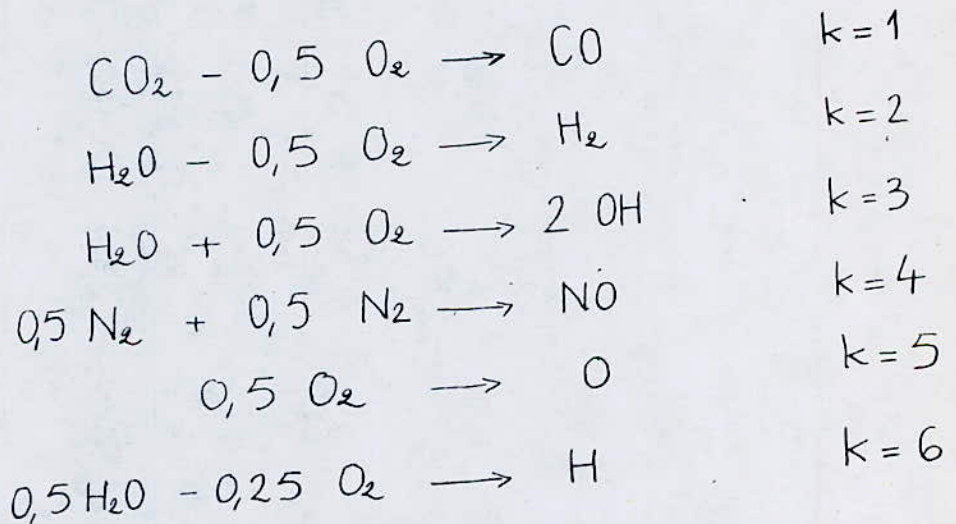 CO₂ - 0,5 O₂ → CO k = 1
H₂O - 0,5 O₂ → H₂ k = 2
H₂O + 0,5 O₂ → 2 OH k = 3
0,5 N₂ + 0,5 N₂ → NO k = 4
0,5 O₂ → O k = 5
0,5 H₂O - 0,25 O₂ → H k = 6